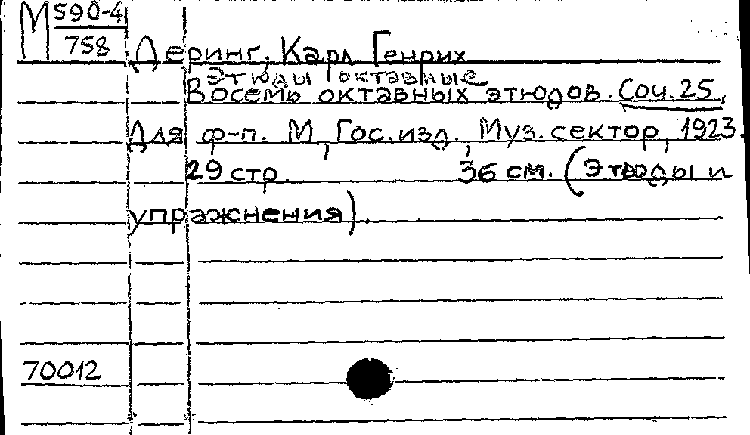 М 590-4
758
Деринг, Карл Генрих
Этюды октавные
Восемь октавных этюдов. Соч. 25.
Для ф-п. М, Гос. изд., Муз. сектор, 1923.
29 стр. 36 см. (Этюды и
упражнения).
70012